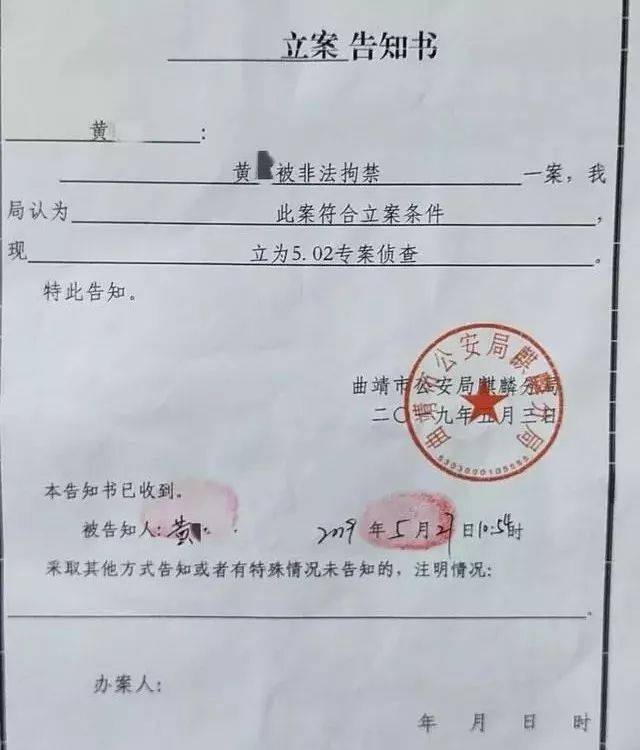 立案告知书
黄 :
黄 被非法拘禁 一案，我
局认为 此案符合立案条件 ，
现 立为5.02专案侦查 。
特此告知。
曲靖市公安局麒麟分局
二〇一九年五月三日
曲靖市公安局麒麟分局
本告知书已收到。
被告知人：黄 2019 年 5 月 27 日 10:54 时
采取其他方式告知或者有特殊情况未告知的，注明情况：
。
办案人：
年 月 日 时